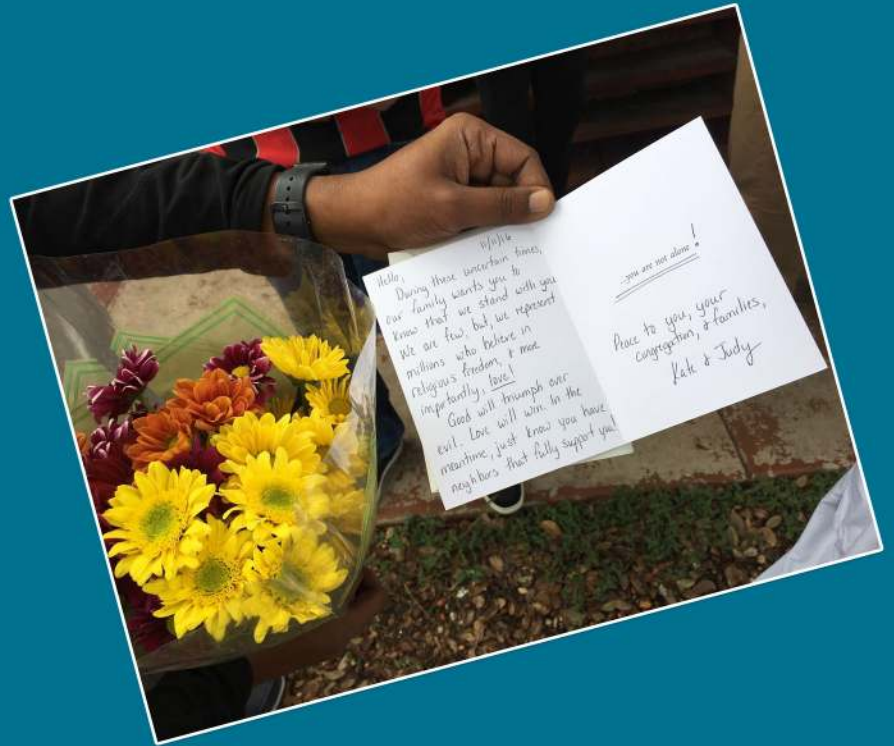 11/11/16
Hello,
During these uncertain times,
our family wants you to
know that we stand with you
We are few, but, we represent
millions who believe in
religious freedom, & more
importantly, love!
Good will triumph over
evil. Love will win. In the
meantime, just know you have
neighbors that fully support you!
...you are not alone!
Peace to you, your
congregation, & families,
Kate & Judy